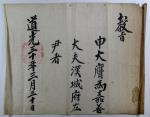 敎旨
申大膺爲嘉善
大夫漢城府左
尹者
道光二十年三月二十日